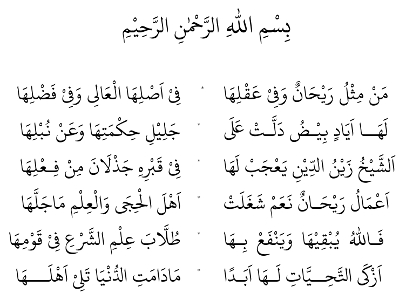 بِسْمِ اللهِ الرَّحْمٰنِ الرَّحِيْمِ
مَنْ مِثْلُ رَيْحَانٌ وَفِيْ عَقْلِهَا ۰ فِيْ اَصْلِهَا الْعَالِى وَفِيْ فَضْلِهَا
لَهَـا اَيَادٍ بِيْـضُ دَلَّـتْ عَلَى ۰ جَلِيْلِ حِكْمَتِهَا وَعَنْ نُبْلِهَا
اَلشَّيْخُ زَيْنُ الدِّيْنِ يَعْجَبْ لَهَا ۰ فِيْ قَبْرِهِ جَذْلَانَ مِنْ فِـعْلِهَا
اَعْمَالُ رَيْحَـانٌ نَعَمْ شَغَلَتْ ۰ اَهْلَ الْحِجَى وَالْعِلْمِ مَاجَلَّهَا
فَـاللهُ يُبْقِيْهَا وَيَنْفَعْ بِـهَا ۰ طُلَّابَ عِلْمِ الشَّرْعِ فِيْ قَوْمِهَا
اَزْكَى التَّحِيَّاتِ لَـهَا اَبَدًا ۰ مَادَامَتِ الدُّنْيَا تَلِيْ اَهْلَـهَا